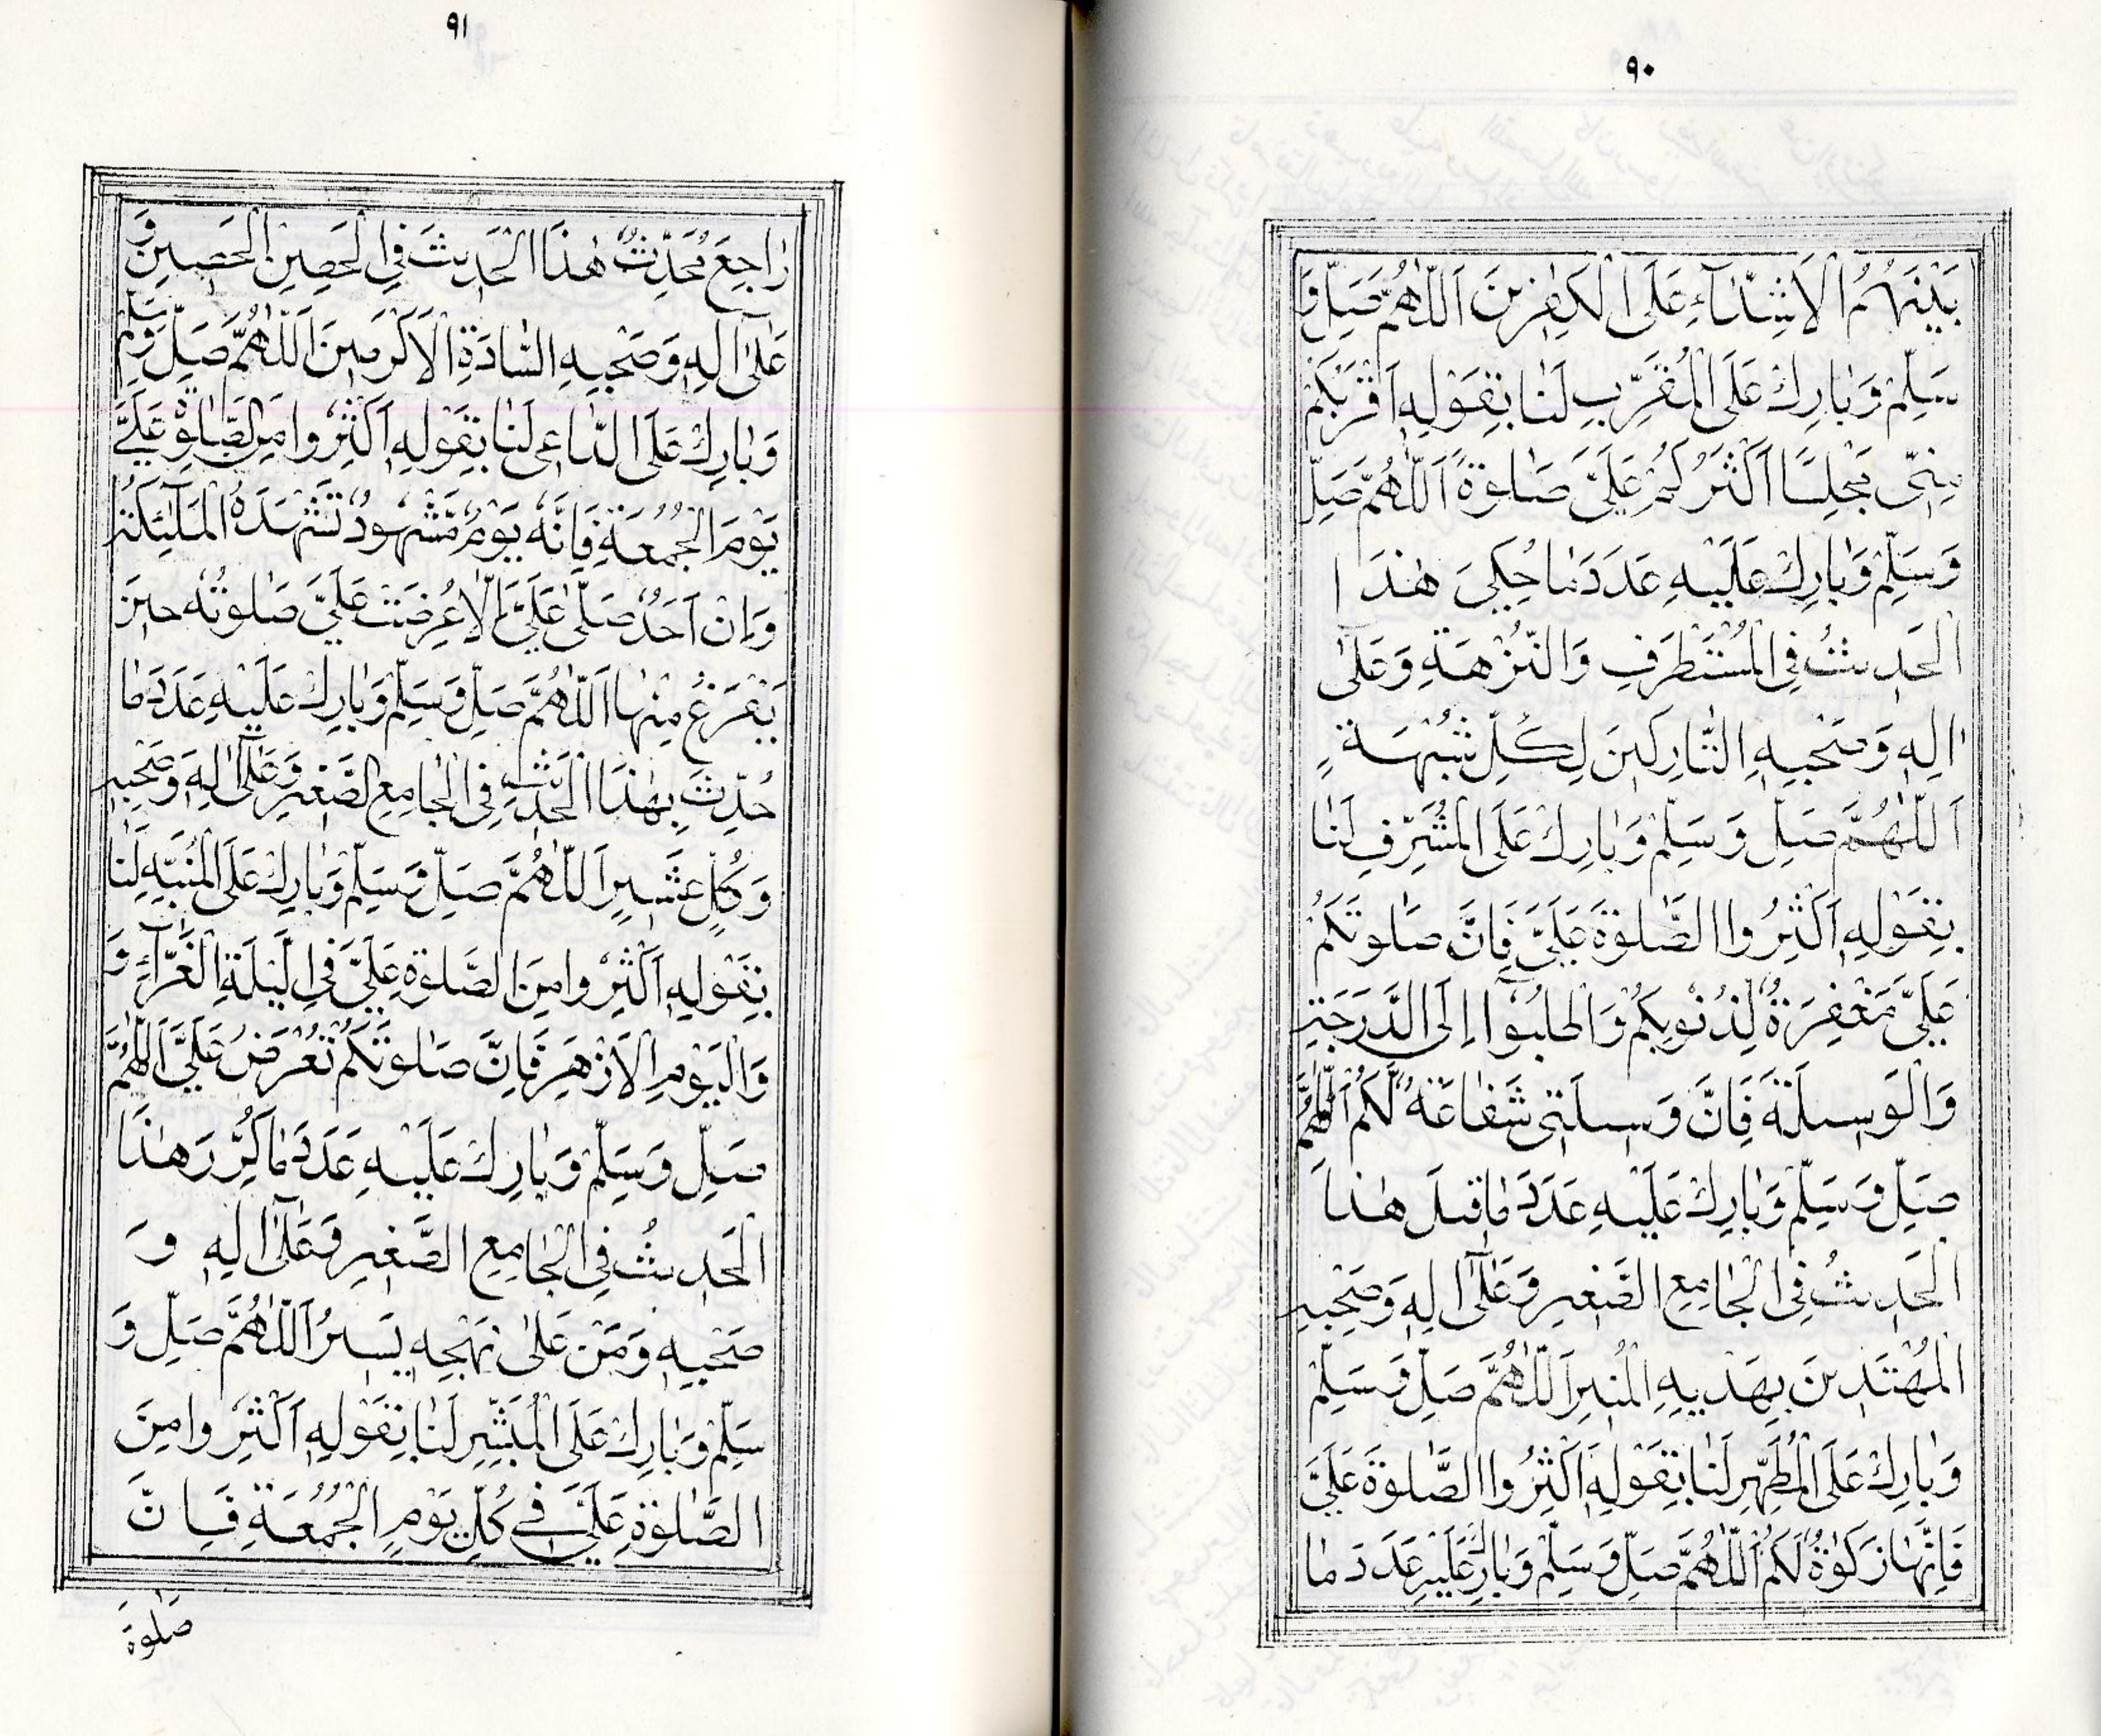 ٩٠
بَيْنَهُمُ الْاَشِدَّآءِ عَلَى الْكٰفِرِيْنَ اَللّٰهُمَّ صَلِّ وَ
سَلِّمْ وَبَارِكْ عَلَى الْمُقَرِّبِ لَنَا بِقَوْلِهٖ اَقْرَبُكُمْ
مِنِّىْ مَجْلِسًا اَكْثَرُكُمْ عَلَىَّ صَلٰوةً اَللّٰهُمَّ صَلِّ
وَسَلِّمْ وَبَارِكْ عَلَيْهِ عَدَدَ مَا حُكِىَ هٰذَا
الْحَدِيْثُ فِى الْمُسْتَطْرَفِ وَالنُّزْهَةِ وَعَلٰى
اٰلِهٖ وَصَحْبِهِ التَّارِكِيْنَ لِكُلِّ شُبْهَةٍ
اَللّٰهُمَّ صَلِّ وَسَلِّمْ وَبَارِكْ عَلَى الْمُشَرِّفِ لَنَا
بِقَوْلِهٖ اَكْثِرُوا الصَّلٰوةَ عَلَىَّ فَاِنَّ صَلٰوتَكُمْ
عَلَىَّ مَغْفِرَةٌ لِّذُنُوْبِكُمْ وَاطْلُبُوْا اِلَى الدَّرَجَةِ
وَالْوَسِيْلَةَ فَاِنَّ وَسِيْلَتِىْ شَفَاعَةٌ لَّكُمْ اَللّٰهُمَّ
صَلِّ وَسَلِّمْ وَبَارِكْ عَلَيْهِ عَدَدَ مَا قِيْلَ هٰذَا
الْحَدِيْثُ فِى الْجَامِعِ الصَّغِيْرِ وَعَلٰٓى اٰلِهٖ وَصَحْبِهِ
الْمُهْتَدِيْنَ بِهَدْيِهِ الْمُنِيْرِ اَللّٰهُمَّ صَلِّ وَسَلِّمْ
وَبَارِكْ عَلَى الْمُطَهِّرِ لَنَا بِقَوْلِهٖ اَكْثِرُوا الصَّلٰوةَ عَلَىَّ
فَاِنَّهَا زَكٰوةٌ لَّكُمْ اَللّٰهُمَّ صَلِّ وَسَلِّمْ وَبَارِكْ عَلَيْهِ عَدَدَ مَا
٩١
رَاجَعَ مُحَدِّثٌ هٰذَا الْحَدِيْثَ فِى الْحِصْنِ الْحَصِيْنِ وَ
عَلٰٓى اٰلِهٖ وَصَحْبِهِ السَّادَةِ الْاَكْرَمِيْنَ اَللّٰهُمَّ صَلِّ وَسَلِّمْ
وَبَارِكْ عَلَى الدَّاعِى لَنَا بِقَوْلِهٖ اَكْثِرُوا مِنَ الصَّلٰوةِ عَلَىَّ
يَوْمَ الْجُمُعَةِ فَاِنَّهٗ يَوْمٌ مَّشْهُوْدٌ تَشْهَدُهُ الْمَلٰٓئِكَةُ
وَاِنْ اَحَدٌ صَلّٰى عَلَىَّ اِلَّا عُرِضَتْ عَلَىَّ صَلٰوتُهٗ حِيْنَ
يَفْرَغُ مِنْهَا اَللّٰهُمَّ صَلِّ وَسَلِّمْ وَبَارِكْ عَلَيْهِ عَدَدَ مَا
حُدِّثَ بِهٰذَا الْحَدِيْثِ فِى الْجَامِعِ الصَّغِيْرِ وَعَلٰٓى اٰلِهٖ وَصَحْبِهٖ
وَكُلِّ عَشِيْرٍ اَللّٰهُمَّ صَلِّ وَسَلِّمْ وَبَارِكْ عَلَى الْمُنَبِّهِ لَنَا
بِقَوْلِهٖ اَكْثِرُوا مِنَ الصَّلٰوةِ عَلَىَّ فِى اللَّيْلَةِ الْغَرَّآءِ وَ
وَالْيَوْمِ الْاَزْهَرِ فَاِنَّ صَلٰوتَكُمْ تُعْرَضُ عَلَىَّ اَللّٰهُمَّ
صَلِّ وَسَلِّمْ وَبَارِكْ عَلَيْهِ عَدَدَ مَا كُرِّرَ هٰذَا
الْحَدِيْثُ فِى الْجَامِعِ الصَّغِيْرِ وَعَلٰٓى اٰلِهٖ وَ
صَحْبِهٖ وَمَنْ عَلٰى نَهْجِهٖ يَسِيْرُ اَللّٰهُمَّ صَلِّ وَ
سَلِّمْ وَبَارِكْ عَلَى الْمُبَشِّرِ لَنَا بِقَوْلِهٖ اَكْثِرُوا مِنَ
الصَّلٰوةِ عَلَىَّ فِىْ كُلِّ يَوْمِ الْجُمُعَةِ فَاِنَّ
صَلٰوةَ